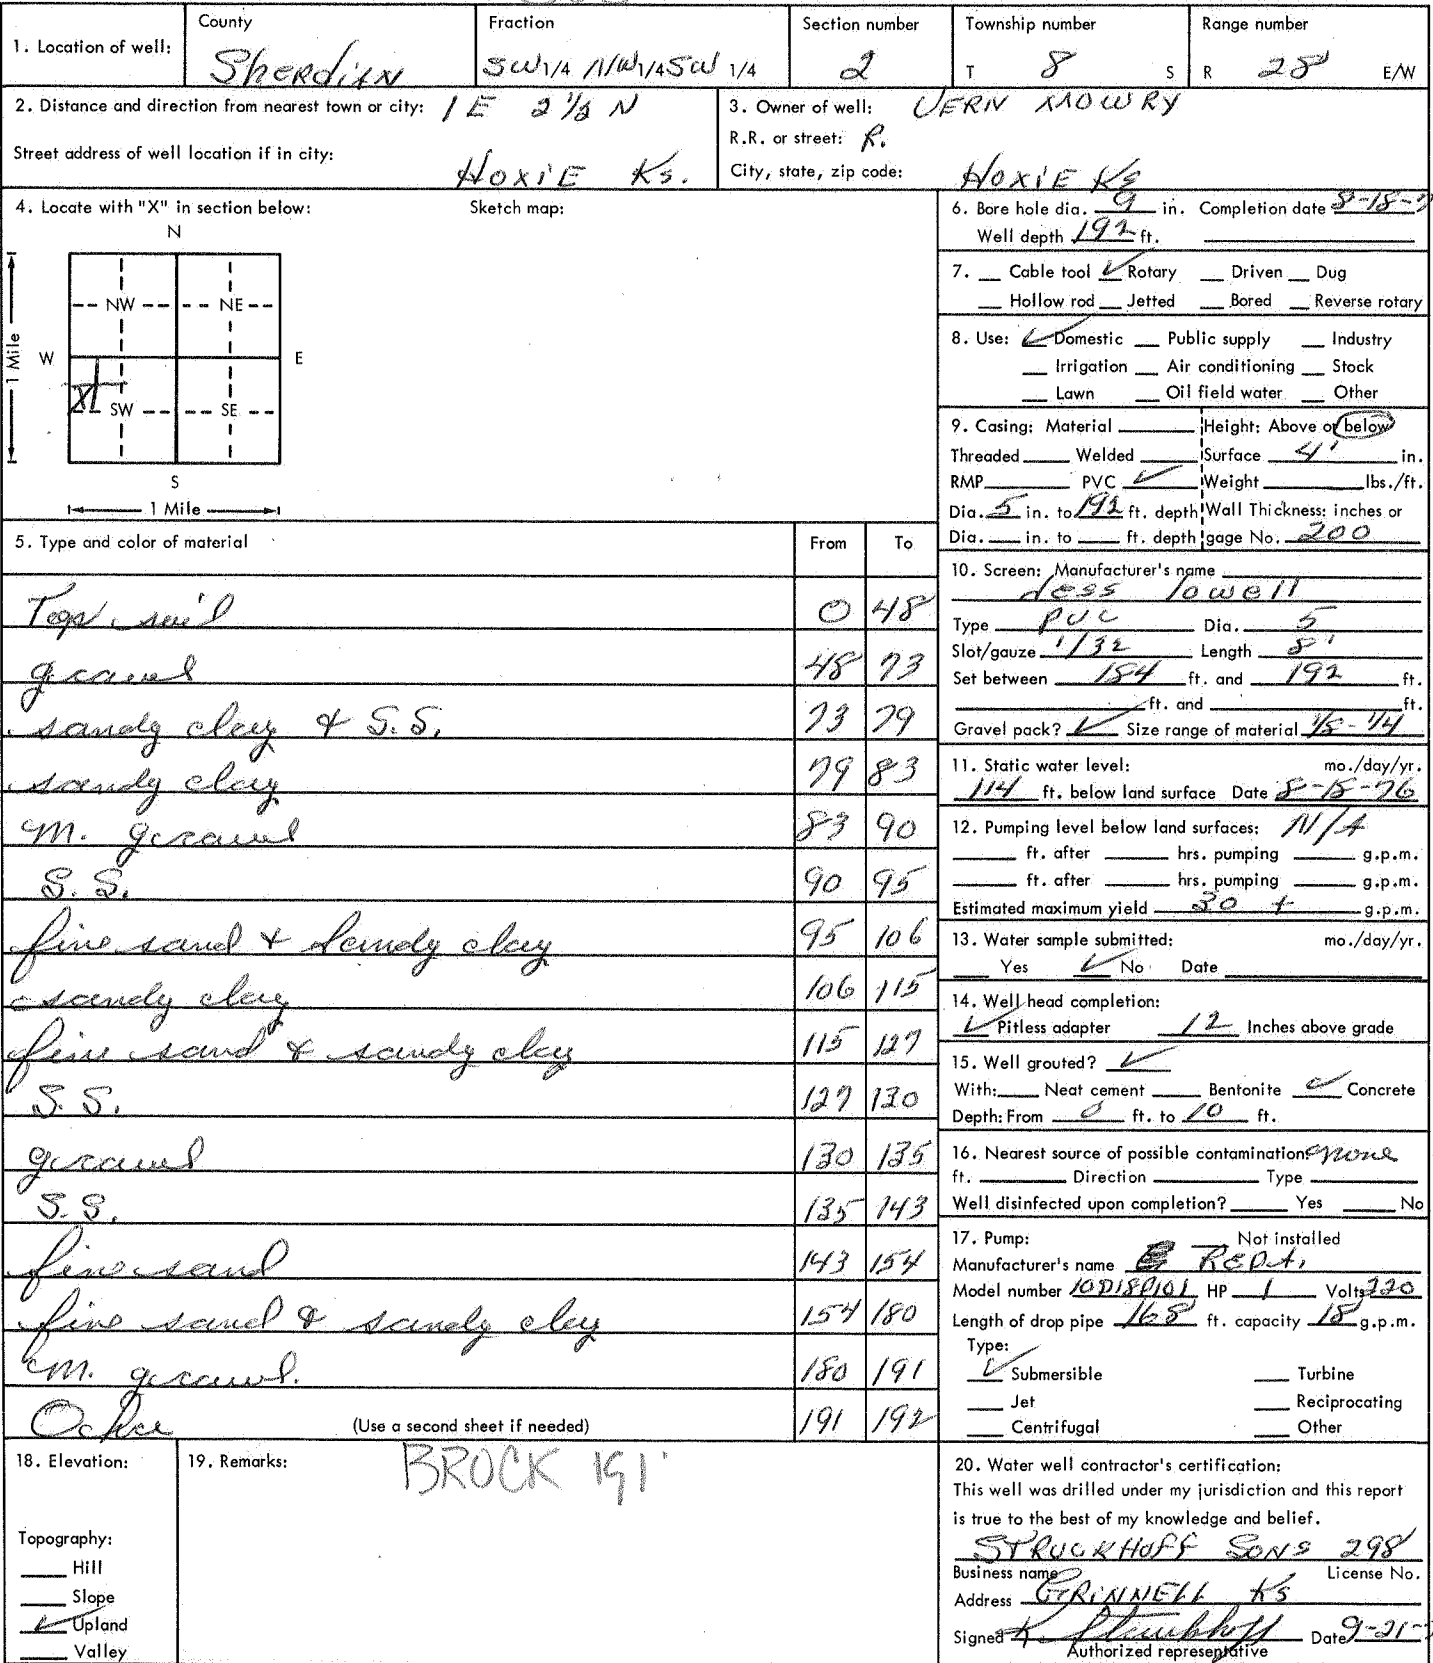 County Fraction Section number Township number Range number
1. Location of well: Sherdian SW 1/4 NW 1/4 SW 1/4 2 T 8 S R 28 E/W
2. Distance and direction from nearest town or city: 1 E 2 1/2 N
Street address of well location if in city: Hoxie Ks.
3. Owner of well: Vern Mowry
R.R. or street: R.
City, state, zip code: Hoxie Ks
4. Locate with "X" in section below: Sketch map:
N
NW NE
W E
X SW SE
S
1 Mile
1 Mile
5. Type and color of material From To
Top soil 0 48
gravel 48 73
sandy clay & S.S. 73 79
sandy clay 79 83
M. gravel 83 90
S.S. 90 95
fine sand & Sandy clay 95 106
sandy clay 106 115
fine sand & sandy clay 115 127
S.S. 127 130
gravel 130 135
S.S. 135 143
fine sand 143 154
fine sand & sandy clay 154 180
M. gravel. 180 191
Ochre (Use a second sheet if needed) 191 192
6. Bore hole dia. 9 in. Completion date 8-18-7
Well depth 192 ft.
7. Cable tool ✓ Rotary Driven Dug
Hollow rod Jetted Bored Reverse rotary
8. Use: ✓ Domestic Public supply Industry
Irrigation Air conditioning Stock
Lawn Oil field water Other
9. Casing: Material Height: Above or below
Threaded Welded Surface 4' in.
RMP PVC ✓ Weight lbs./ft.
Dia. 5 in. to 192 ft. depth Wall Thickness: inches or
Dia. in. to ft. depth gage No. 200
10. Screen: Manufacturer's name
Jess Lowell
Type PVC Dia. 5
Slot/gauze 1/32 Length 8'
Set between 184 ft. and 192 ft.
ft. and ft.
Gravel pack? ✓ Size range of material 1/8-1/4
11. Static water level: mo./day/yr.
114 ft. below land surface Date 8-18-76
12. Pumping level below land surfaces: N/A
ft. after hrs. pumping g.p.m.
ft. after hrs. pumping g.p.m.
Estimated maximum yield 30 + g.p.m.
13. Water sample submitted: mo./day/yr.
Yes ✓ No Date
14. Well head completion:
✓ Pitless adapter 12 Inches above grade
15. Well grouted? ✓
With: Neat cement Bentonite ✓ Concrete
Depth: From 0 ft. to 10 ft.
16. Nearest source of possible contamination: none
ft. Direction Type
Well disinfected upon completion? Yes No
17. Pump: Not installed
Manufacturer's name REDA.
Model number 10D18P101 HP 1 Volts 220
Length of drop pipe 168 ft. capacity 18 g.p.m.
Type:
✓ Submersible Turbine
Jet Reciprocating
Centrifugal Other
18. Elevation: 19. Remarks: BROCK 191'
Topography:
Hill
Slope
✓ Upland
Valley
20. Water well contractor's certification:
This well was drilled under my jurisdiction and this report
is true to the best of my knowledge and belief.
Struckhoff Sons 298
Business name License No.
Address Grinnell Ks
Signed K. Struckhoff Date 9-21-
Authorized representative